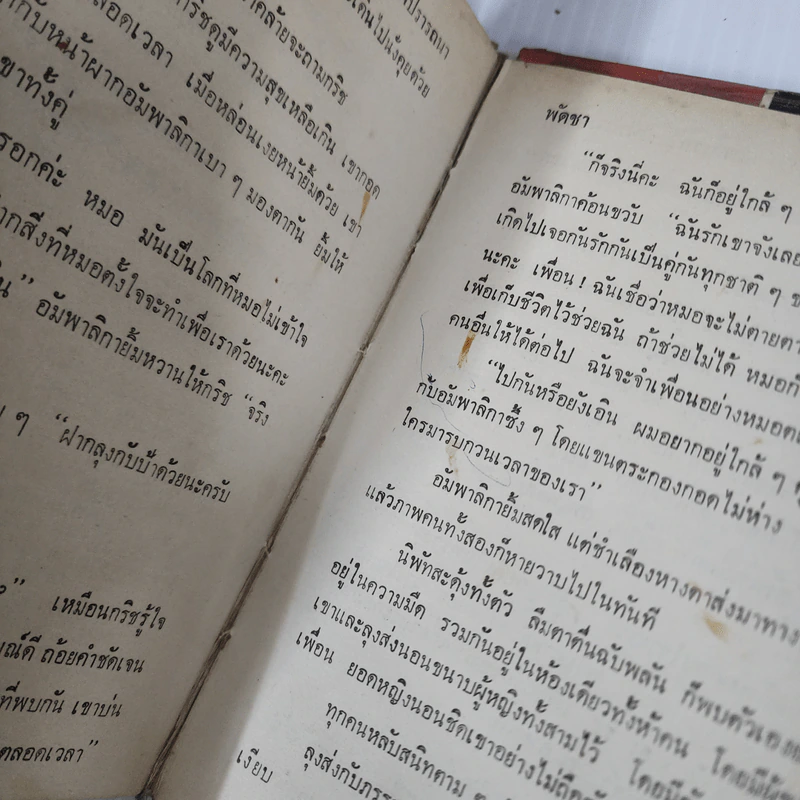 ปรารถนา
เดินไปนั่งคุยด้วย
คล้ายจะถามกริช
กริชดูมีความสุขเหลือเกิน เขากอด
ตลอดเวลา เมื่อหล่อนเงยหน้ายิ้มด้วย เขา
กับหน้าผากอัมพาลิกาเบา ๆ มองตากัน ยิ้มให้
เขาทั้งคู่
หรอกค่ะ หมอ มันเป็นโลกที่หมอไม่เข้าใจ
จากสิ่งที่หมอตั้งใจจะทำเพื่อเราด้วยนะคะ
อัมพาลิกายิ้มหวานให้กริช “จริง
ๆ “ฝากลุงกับป้าด้วยนะครับ
เหมือนกริชรู้ใจ
ถ้อยคำชัดเจน
ที่พบกัน เขาบ่น
ตลอดเวลา”
พัดชา
“ก็จริงนี่คะ ฉันก็อยู่ใกล้ ๆ
อัมพาลิกาค้อนขวับ “ฉันรักเขาจังเลย
เกิดไปเจอกันรักกันเป็นคู่กันทุกชาติ ๆ
นะคะ เพื่อน! ฉันเชื่อว่าหมอจะไม่ตาย
เพื่อเก็บชีวิตไว้ช่วยฉัน ถ้าช่วยไม่ได้ หมอก็
คนอื่นให้ได้ต่อไป ฉันจะจำเพื่อนอย่างหมอ
“ไปกันหรือยังเอิน ผมอยากอยู่ใกล้ ๆ
กับอัมพาลิกาซึ้ง ๆ โดยแขนตระกองกอดไม่ห่าง
ใครมารบกวนเวลาของเรา”
อัมพาลิกายิ้มสดใส แต่ชำเลืองหางตาส่งมาทาง
แล้วภาพคนทั้งสองก็หายวาบไปในทันที
นิพัทสะดุ้งทั้งตัว ลืมตาตื่นฉับพลัน ก็พบตัวเอง
อยู่ในความมืด รวมกันอยู่ในห้องเดียวทั้งห้าคน โดยมี
เขาและลุงส่งนอนขนาบผู้หญิงทั้งสามไว้ โดยมี
เพื่อน ยอดหญิงนอนชิดเขาอย่างไม่
ทุกคนหลับสนิทตาม ๆ
ลุงส่งกับภรร
เงียบ